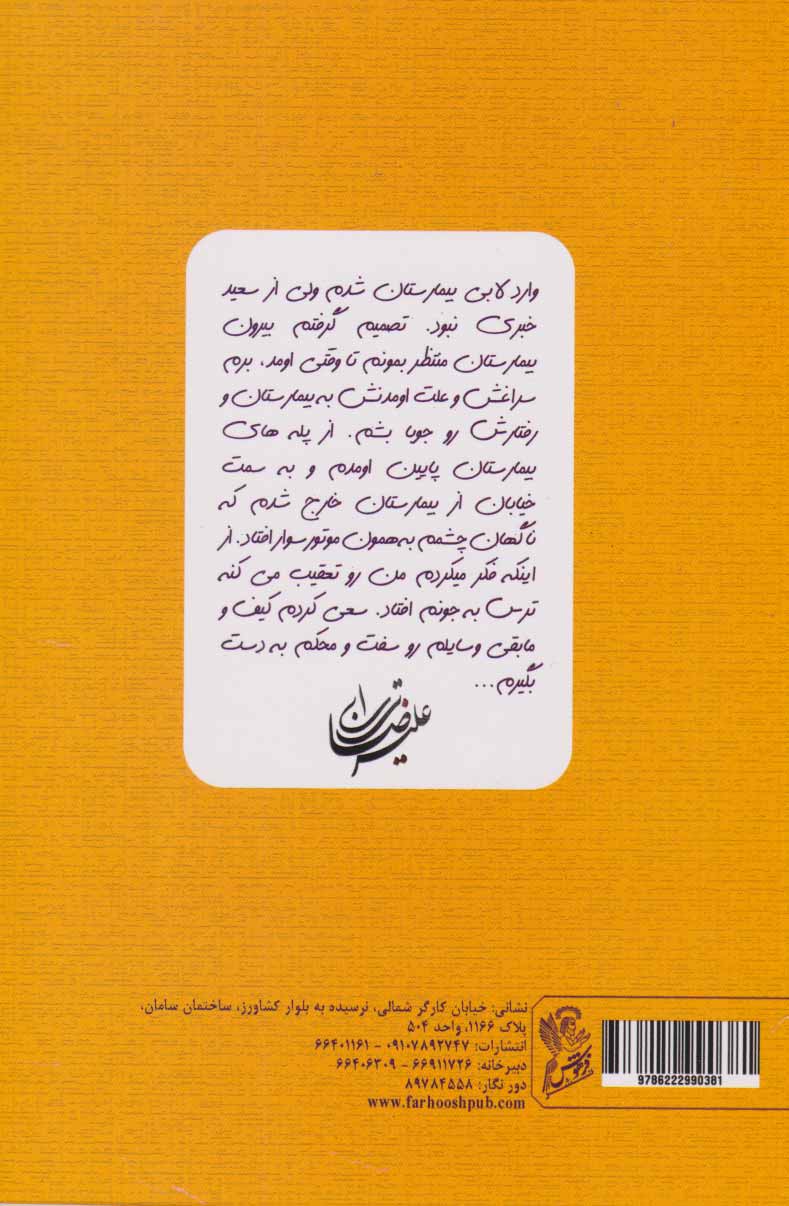 وارد لابی بیمارستان شدم ولی از سعید
خبری نبود. تصمیم گرفتم بیرون
بیمارستان منتظر بمونم تا وقتی اومد، برم
سراغش و علت اومدنش به بیمارستان و
رفتارش رو جویا بشم. از پله های
بیمارستان پایین اومدم و به سمت
خیابان از بیمارستان خارج شدم که
ناگهان چشمم به همون موتورسوار افتاد. از
اینکه فکر میکردم من رو تعقیب می کنه
ترس به جونم افتاد. سعی کردم کیف و
مابقی وسایلم رو سفت و محکم به دست
بگیرم...
علیرضا ترابی
نشانی: خیابان کارگر شمالی، نرسیده به بلوار کشاورز، ساختمان سامان،
پلاک ۱۱۶۶، واحد ۵۰۴
انتشارات: ۰۹۱۰۷۸۹۲۷۴۷ - ۶۶۴۰۱۱۶۱
دبیرخانه: ۶۶۹۱۱۷۲۶ - ۶۶۴۰۶۳۰۹
دور نگار: ۸۹۷۸۴۵۵۸
www.farhooshpub.com
فرهوش
9786222990381